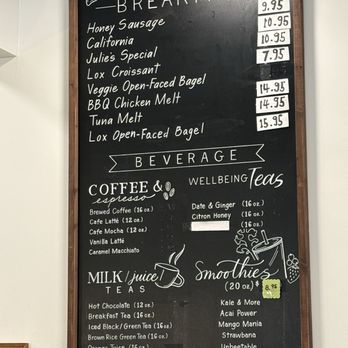 BREAKFAST
9.95
Honey Sausage 10.95
California 10.95
Julie's Special 7.95
Lox Croissant
Veggie Open-Faced Bagel 14.95
BBQ Chicken Melt 14.95
Tuna Melt 15.95
Lox Open-Faced Bagel
BEVERAGE
COFFEE &
espresso
Brewed Coffee (16 oz.)
Cafe Latté (12 oz.)
Cafe Mocha (12 oz.)
Vanilla Latté
Caramel Macchiato
WELLBEING Teas
Date & Ginger (16 oz.)
Citron Honey (16 oz.)
(16 oz.)
MILK/juice
TEAS
Hot Chocolate (12 oz.)
Breakfast Tea (16 oz.)
Iced Black/Green Tea (16 oz.)
Brown Rice Green Tea (16 oz.)
Smoothies
(20 oz.) $ 8.95
Kale & More
Acai Power
Mango Mania
Strawbana
Unbeetable